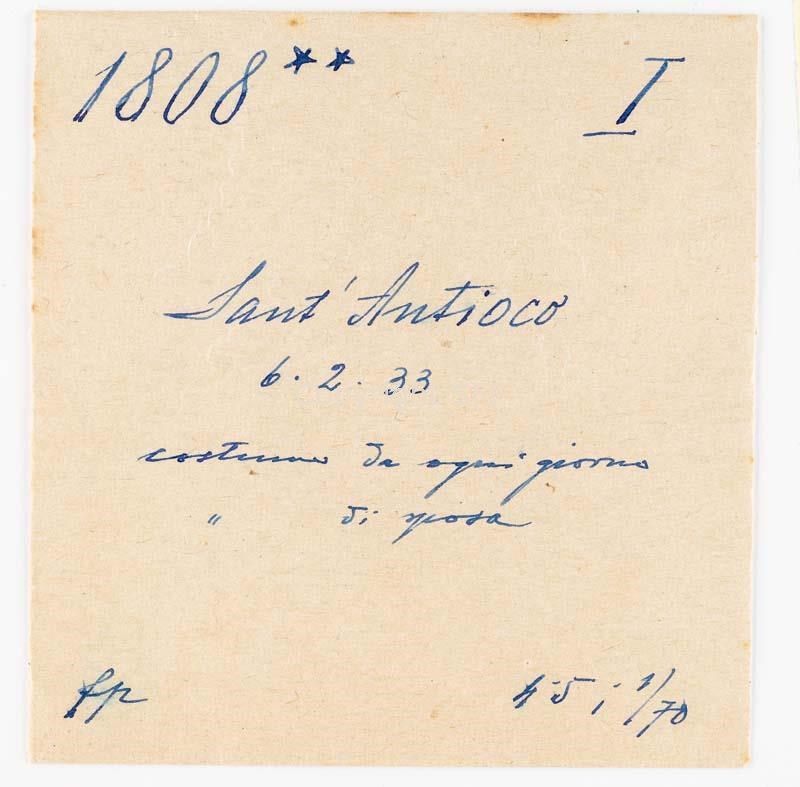 1808** I
Sant'Antioco
6. 2. 33
costume da ogni giorno
" di sposa
fp 4.5 ; 1/70